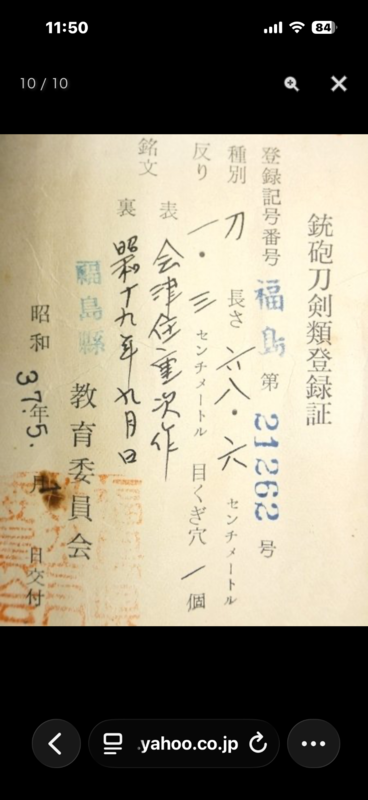 11:50
84
10 / 10
銃砲刀剣類登録証
登録記号番号 福島 第 21262 号
種別 刀 長さ 六八・六 センチメートル
反り 一・三 センチメートル 目くぎ穴 一 個
銘文 表 会津住重次作
裏 昭和十九年九月日
福島縣 教育委員会
昭和 37年5. 月 日交付
yahoo.co.jp